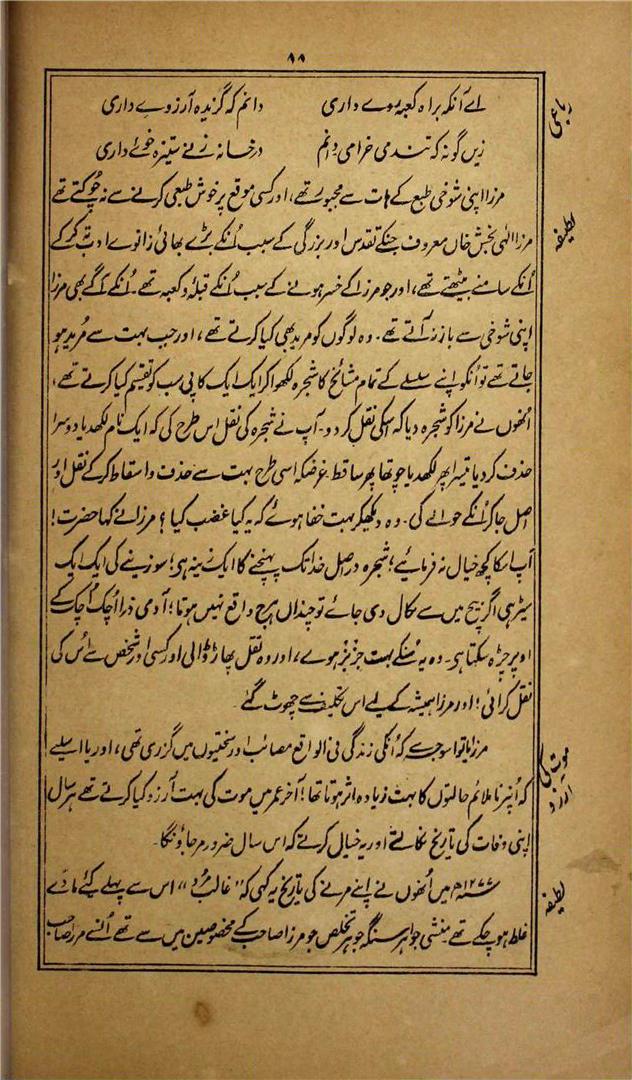 ۸۸
رباعی
اے آنکہ براہ کعبہ روے داری دانم کہ گزیدہ آرزوے داری
زیں گونہ کہ تند می خرامی دانم در خانہ زنے ستیزہ خوئے داری
مرزا اپنی شوخی طبع کے ہات سے مجبور تھے، اور کسی موقع پر خوش طبعی کرنے سے نہ چُوکتے تھے
لطیفہ
مرزا الٰہی بخش خاں معروف جنکے تقدس اور بزرگی کے سبب اُنکے بڑے بھائی زانوے ادب تہ کرکے
اُنکے سامنے بیٹھتے تھے، اور جو مرزا کے خسر ہونے کے سبب اُنکے قبلہ و کعبہ تھے۔ اُنکے آگے بھی مرزا
اپنی شوخی سے باز نہ آتے تھے۔ وہ لوگوں کو مرید بھی کیا کرتے تھے، اور جب بہت سے مُرید ہو
جاتے تھے تو اُنکو اپنے سلسلے کے تمام مشائخ کا شجرہ لکھوا کر ایک ایک کاپی سب کو تقسیم کیا کرتے تھے،
اُنھوں نے مرزا کو شجرہ دیا کہ اسکی نقل کردو۔ آپ نے شجرہ کی نقل اس طرح کی کہ ایک نام لکھدیا دوسرا
حذف کردیا تیسرا پھر لکھدیا چوتھا پھر ساقط، غرضکہ اسی طرح بہت سے حذف و اسقاط کرکے نقل اور
اصل جاکر اُنکے حوالے کی۔ وہ دیکھکر بہت خفا ہوئے کہ یہ کیا غضب کیا؟ مرزا نے کہا حضرت!
آپ اسکا کچھ خیال نہ فرمایئے؛ شجرہ دراصل خدا تک پہنچنے کا ایک زینہ ہی؛ سو زینے کی ایک ایک
سیڑھی اگر بیچ میں سے نکال دی جائے تو چنداں ہرج واقع نہیں ہوتا؛ آدمی ذرا اُچک اُچک کے
اوپر چڑھ سکتا ہی۔ وہ یہ سُنکے بہت جزبز ہوے، اور وہ نقل پھاڑ ڈالی اور کسی اور شخص سے اُس کی
نقل کرائی؛ اور مرزا ہمیشہ کے لیے اس تکلیف سے چھوٹ گئے۔
موت کی آرزو
مرزا یا تو اسوجہ سے کہ اُنکی زندگی فی الواقع مصائب اور سختیوں میں گزری تھی، اور یا اسلیے
کہ اُنپر ناملائم حالتوں کا بہت زیادہ اثر ہوتا تھا؛ آخر عمر میں موت کی بہت آرزو کیا کرتے تھے ہر سال
اپنی وفات کی تاریخ نکالتے اور یہ خیال کرتے کہ اس سال ضرور مر جاؤنگا۔
لطیفہ
سنہ ۱۲۷۷ھ میں اُنھوں نے اپنے مرنے کی تاریخ یہ کہی کہ "غالب مُرد" اس سے پہلے کئی مادّے
غلط ہو چکے تھے۔ منشی جواہر سنگہ جوہر تخلص جو مرزا صاحب کے مخصوصین میں سے تھے اُنسے مرزا صاحب